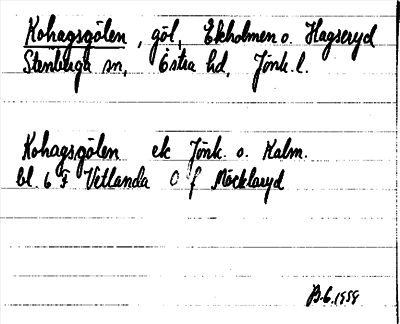 Kohagsgölen, göl, Ekholmen o. Hagseryd
Stenberga sn, Östra hd, Jönk. l.
Kohagsgölen ek Jönk. o. Kalm.
bl. 6 F Vetlanda O f Möcklaryd
B.G. 1959